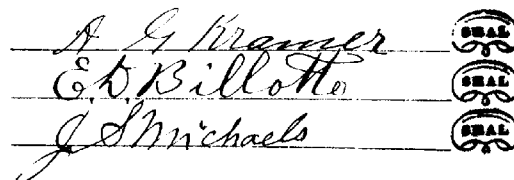 A G Kramer SEAL
E. D. Billotte SEAL
J S Michaels SEAL